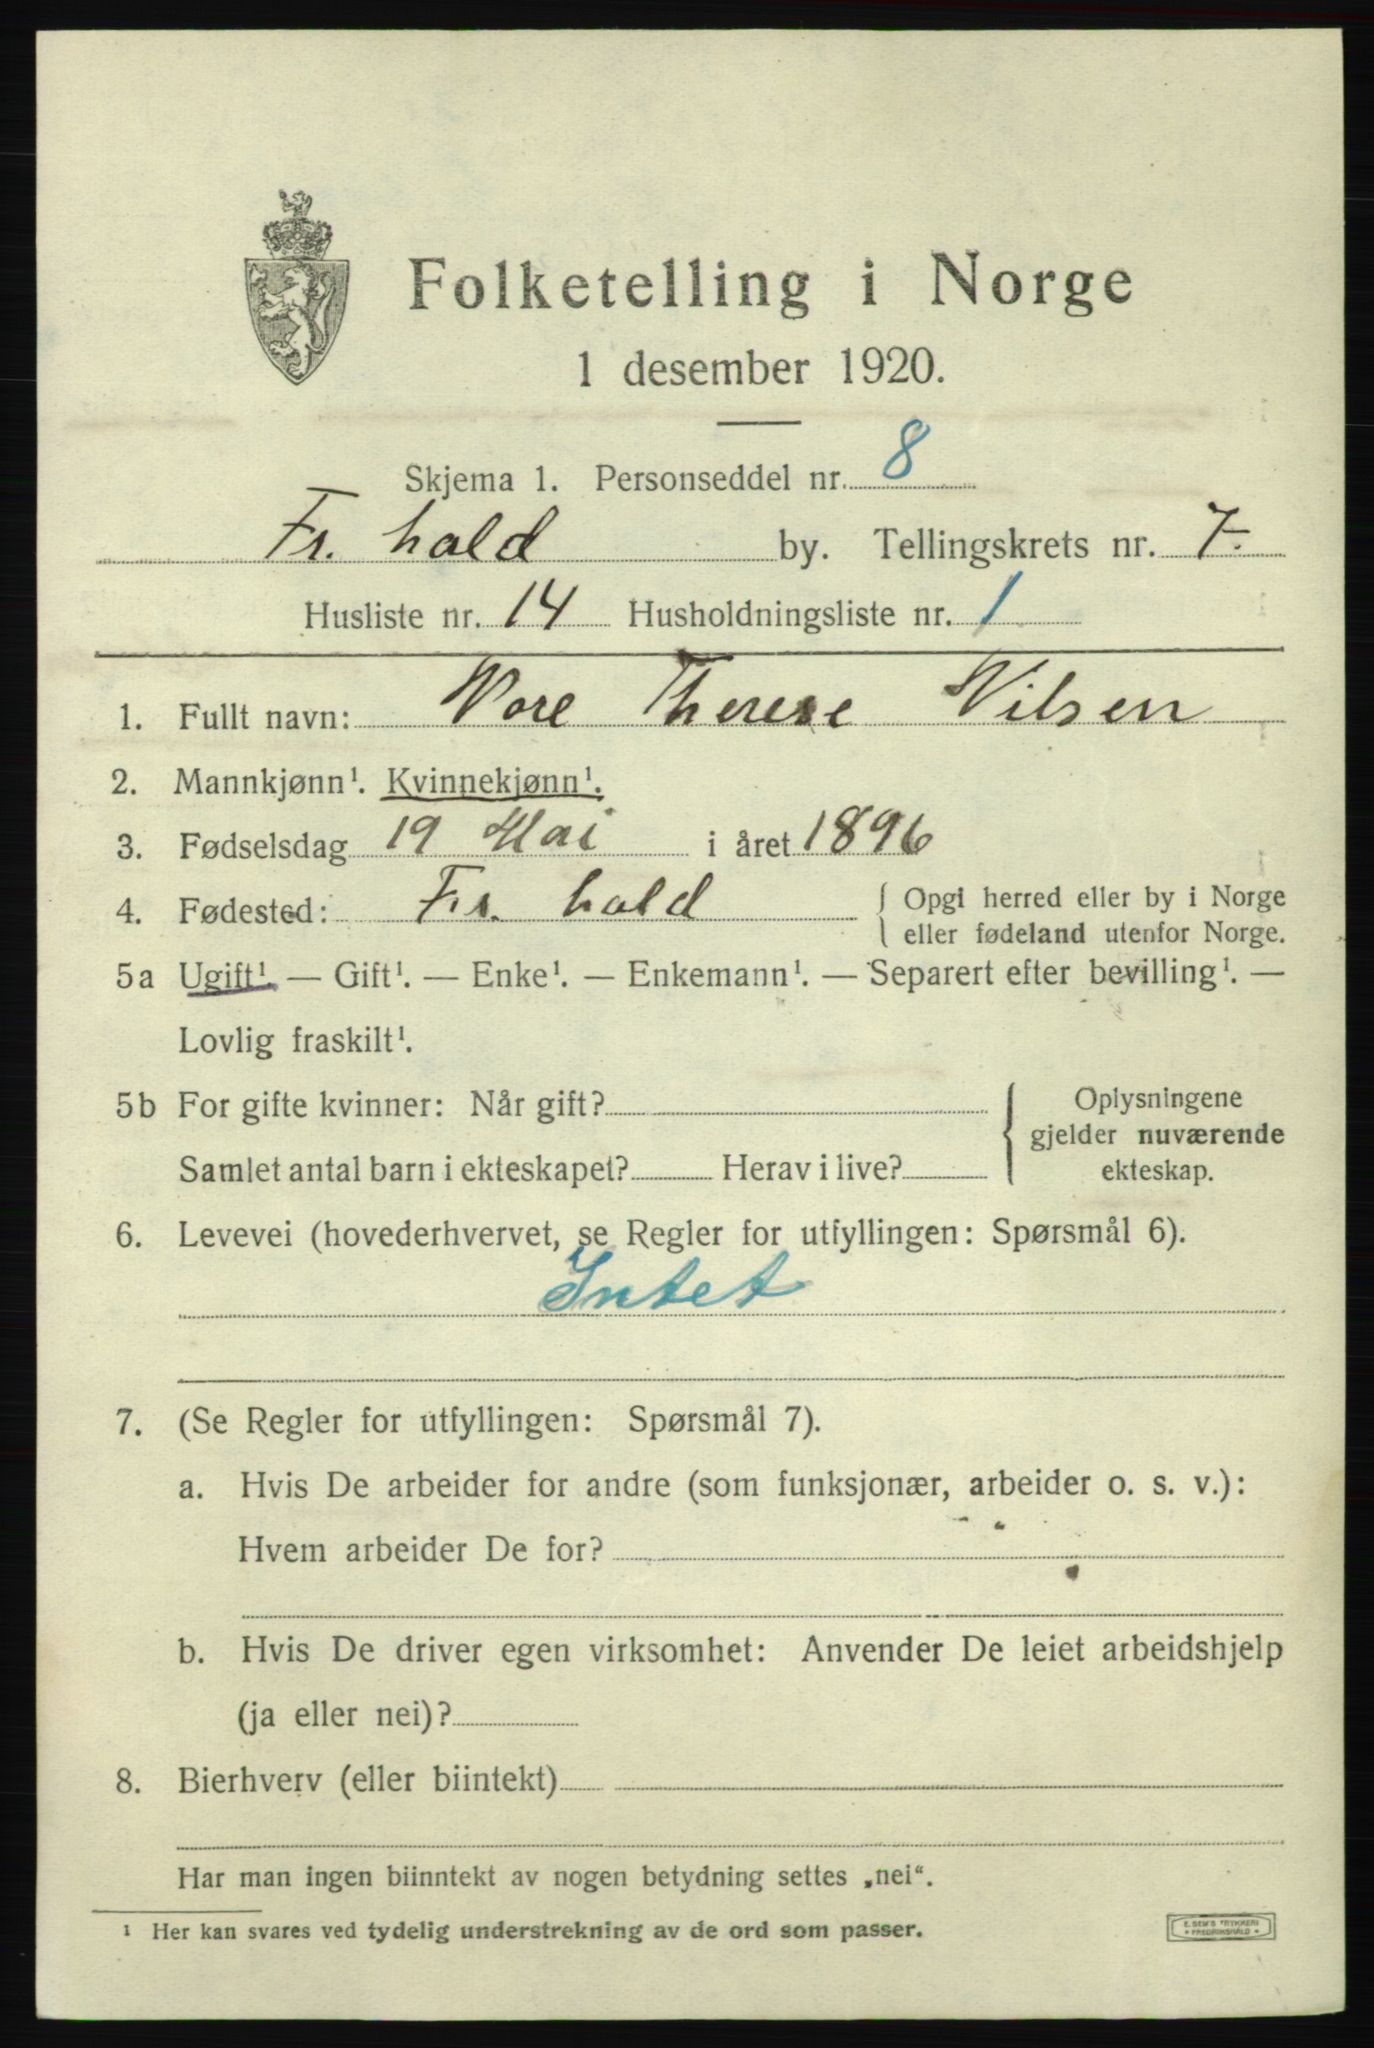 Folketelling i Norge
1 desember 1920.
Skjema 1. Personseddel nr. 8
Fr. hald by. Tellingskrets nr. 7.
Husliste nr. 14 Husholdningsliste nr. 1
1. Fullt navn: Nore Therese Nilsen
2. Mannkjønn¹. Kvinnekjønn¹.
3. Fødselsdag 19 Mai i året 1896
4. Fødested: Fr. hald { Opgi herred eller by i Norge
eller fødeland utenfor Norge.
5a Ugift¹. — Gift¹. — Enke¹. — Enkemann¹. — Separert efter bevilling¹. —
Lovlig fraskilt¹.
5b For gifte kvinner: Når gift? { Oplysningene
gjelder nuværende
Samlet antal barn i ekteskapet? Herav i live? ekteskap.
6. Levevei (hovederhvervet, se Regler for utfyllingen: Spørsmål 6).
Intet
7. (Se Regler for utfyllingen: Spørsmål 7).
a. Hvis De arbeider for andre (som funksjonær, arbeider o. s. v.):
Hvem arbeider De for?
b. Hvis De driver egen virksomhet: Anvender De leiet arbeidshjelp
(ja eller nei)?
8. Bierhverv (eller biintekt)
Har man ingen biinntekt av nogen betydning settes „nei“.
¹ Her kan svares ved tydelig understrekning av de ord som passer.
E. SEM'S TRYKKERI
FREDRIKSHALD